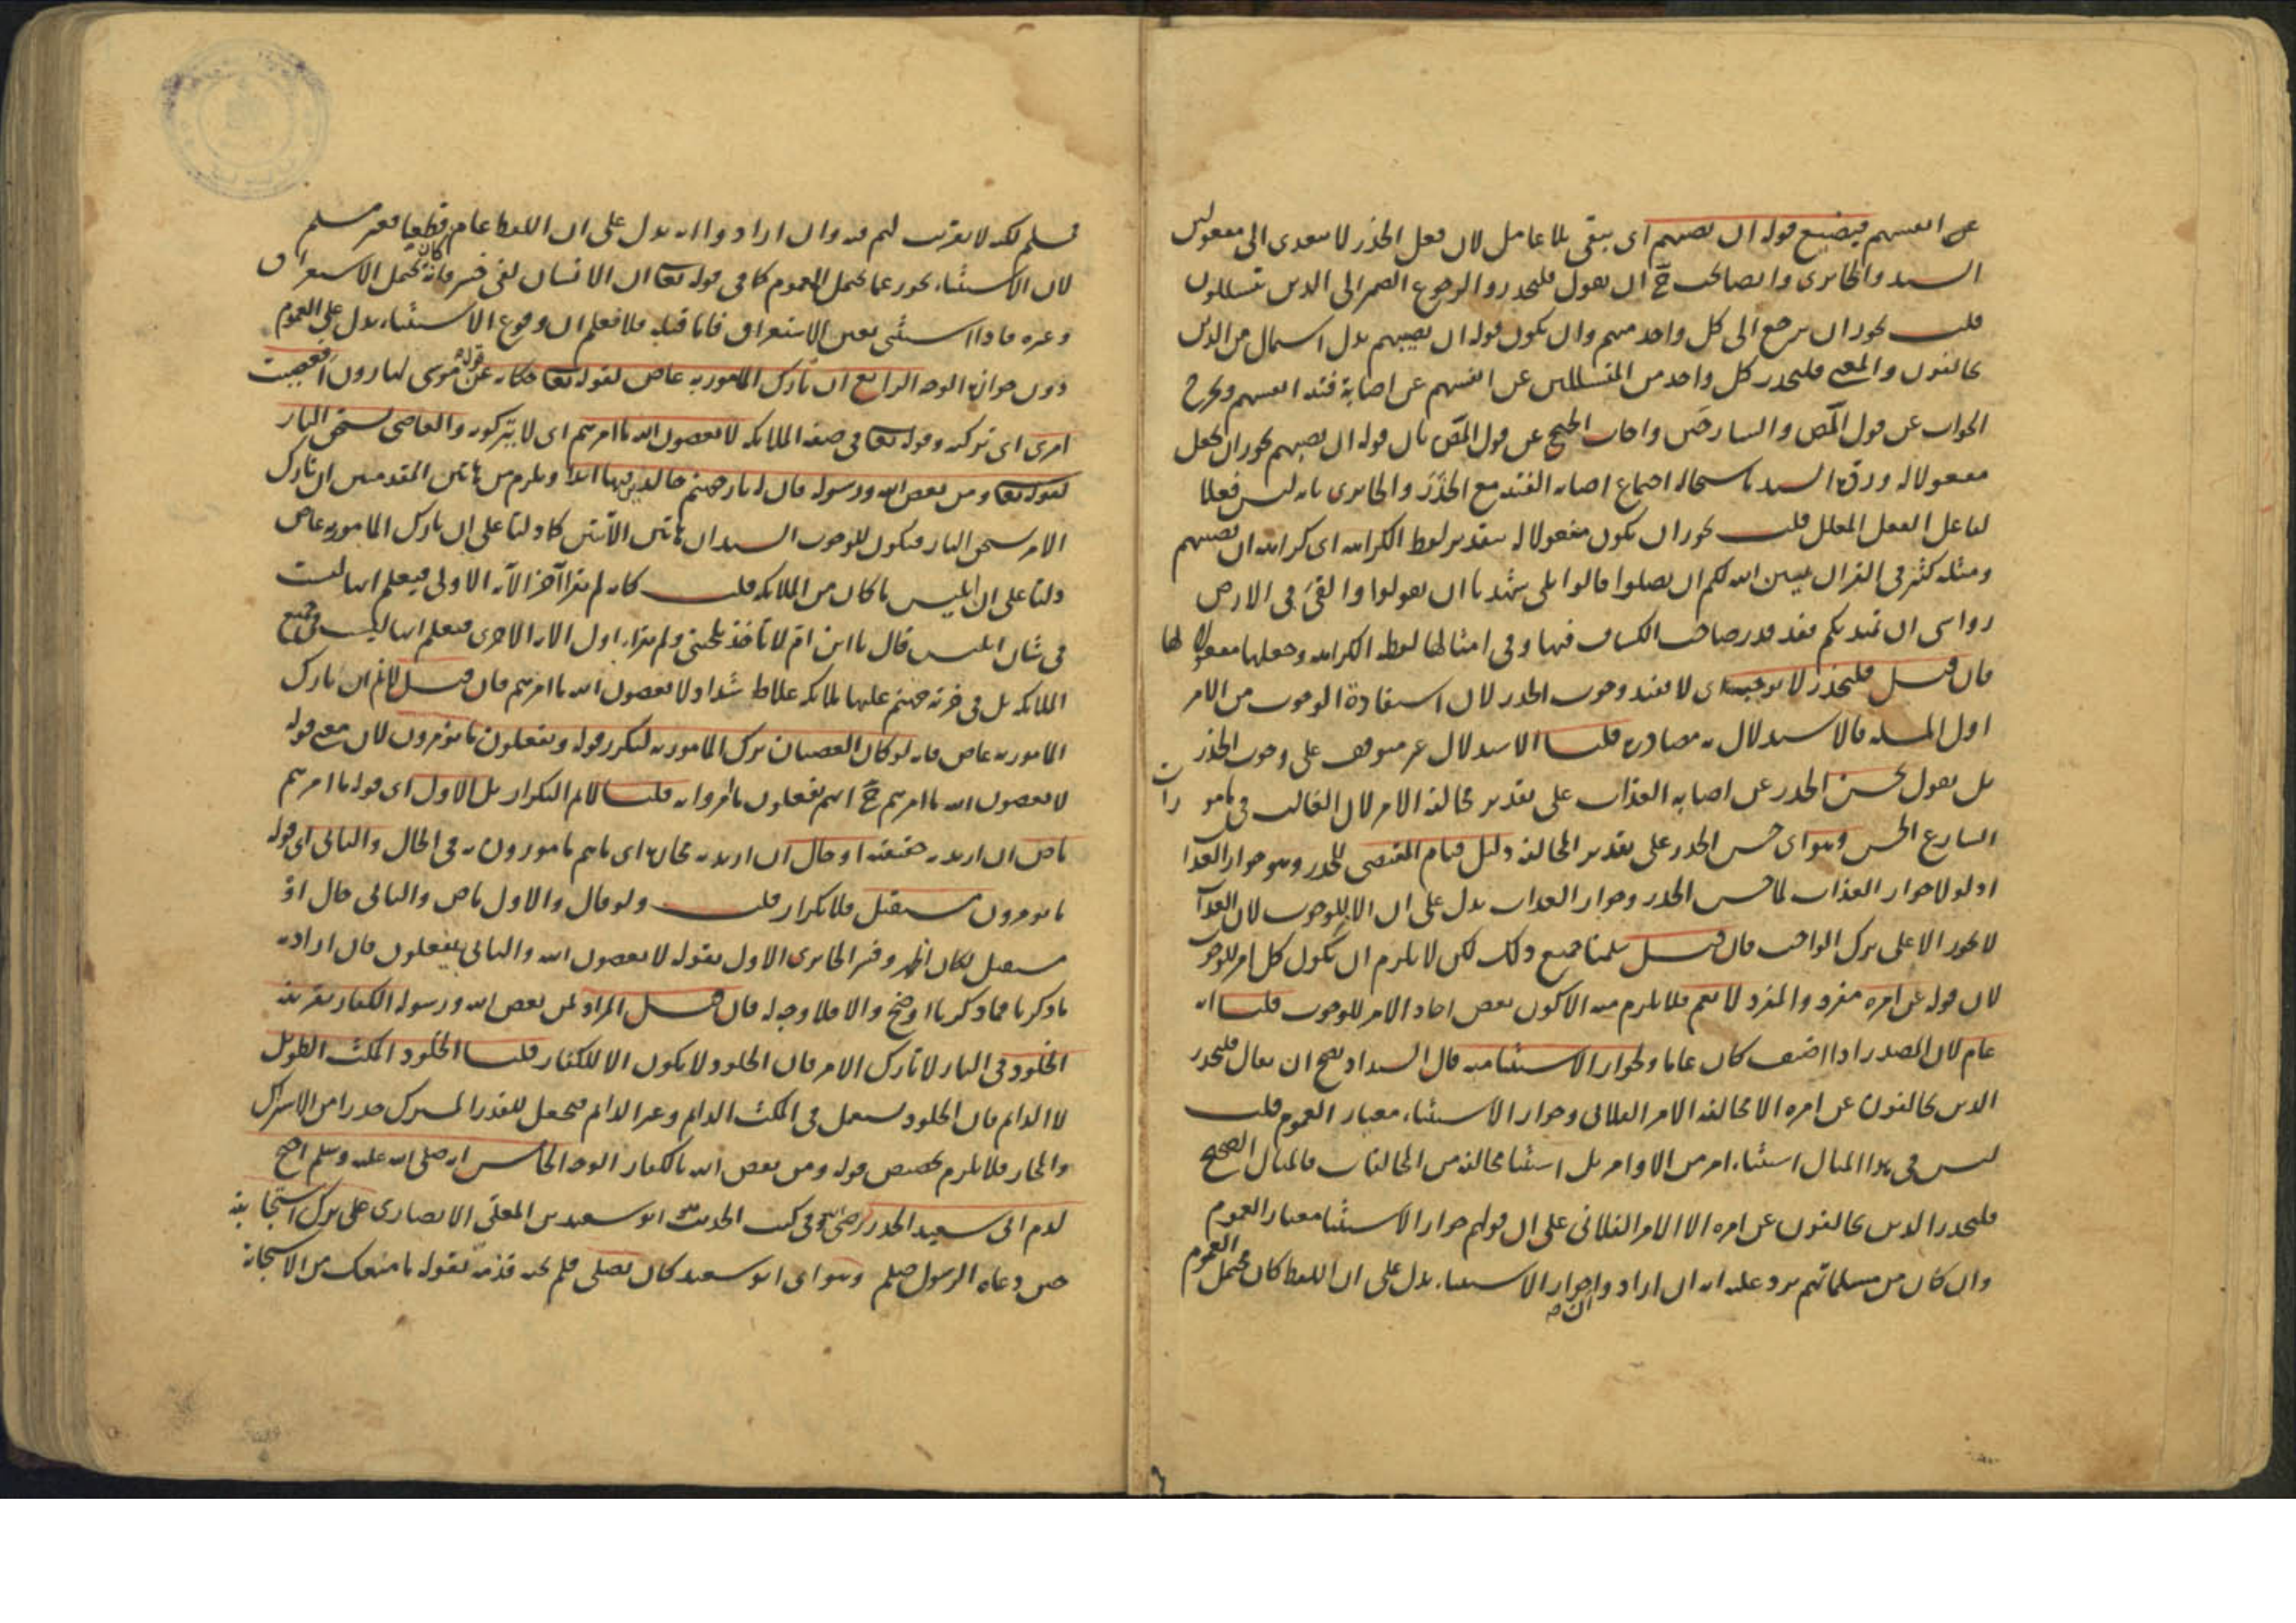 عن انفسهم فيضيع قوله ان تصيبهم اى يبقى بلا عامل لان فعل الحذر لا يتعدى الى مفعولين
السيد والجابردى وايضا يجب ح ان يقول فليحذروا لرجوع الضمير الى الذين يتسللون
قلت يجوز ان يرجع الى كل واحد منهم وان يكون قوله ان يصيبهم بدل اشتمال من الذين
يخالفون والمعنى فليحذر كل واحد من المتسللين عن انفسهم عن اصابة فتنة انفسهم ويخرج
الجواب عن قول المص والشارحين واجاب الخنجى عن قول المص بان قوله ان يصيبهم يجوز ان يجعل
مفعولا له ورده السيد باستحالة اجتماع اصابة الفتنة مع الحذر والجابردى بانه ليس فعلا
لفاعل الفعل المعلل قلت يجوز ان يكون مفعولا له بتقدير لفظ الكراهة اى كراهة ان تصيبهم
ومثله كثير فى القران يبين الله لكم ان تضلوا قالوا بلى شهدنا ان تقولوا والقى فى الارض
رواسى ان تميد بكم فقد قدر صاحب الكشاف فيها وفى امثالها لفظ الكراهة وجعلها مفعولا لها
فان قيل فليحذر لا يوجبه اى لا يفيد وجوب الحذر لان استفادة الوجوب من الامر
اول المسئلة فالاستدلال به مصادرة قلنا الاستدلال غير متوقف على وجوب الحذر
بل نقول يحسن الحذر عن اصابة العذاب على تقدير مخالفة الامر لان الغالب فى مامورات
الشارع الحسن وهو اى حسن الحذر على تقدير المخالفة دليل قيام المقتضى للحذر وهو جواز العذاب
اذ لولا جواز العذاب لما حسن الحذر وجواز العذاب يدل على ان الامر للوجوب لان العذاب
لا يجوز الا على ترك الواجب فان قيل سلمنا جميع ذلك لكن لا يلزم ان يكون كل امر للوجوب
لان قوله عن امره مفرد والمفرد لا يعم فلا يلزم منه الا كون بعض احاد الامر للوجوب قلنا انه
عام لان المصدر اذا اضيف كان عاما ولجواز الاستثنا منه قال السيد اذ يصح ان يقال فليحذر
الذين يخالفون عن امره الا مخالفة الامر الفلانى وجواز الاستثناء معيار العموم قلت
ليس فى هذا المثال استثناء امر من الاوامر بل استثنا مخالفة من المخالفات فالمثال الصحيح
فليحذر الذين يخالفون عن امره الا الامر الفلانى على ان قولهم جواز الاستثنا معيار العموم
وان كان من مسلماتهم يرد عليه انه ان ارادوا بجواز الاستثناء يدل على ان اللفظ كان يحتمل العموم
فمسلم لكنه لا يقرب لهم منه وان ارادوا انه يدل على ان اللفظ عام قطعيا فغير مسلم
لان الاستثناء يجوز عما يحتمل العموم كما فى قوله تعالى ان الانسان لفى خسر فانه كان يحتمل الاستغراق
وغيره فاذا استثنى تعين الاستغراق فاما قبله فلا فعلم ان وقوع الاستثناء يدل على العموم
دون جوازه الوجه الرابع ان تارك المامور به عاص لقوله تعالى حكاية عن قوله موسى لهارون افعصيت
امرى اى تركته وقوله تعالى فى صفة الملائكة لا يعصون الله ما امرهم اى لا يتركونه والعاصى يستحق النار
لقوله تعالى ومن يعص الله ورسوله فان له نار جهنم خالدين فيها ابدا ويلزم من هاتين المقدمتين ان تارك
الامر يستحق النار فيكون للوجوب السيد ان هاتين الآيتين كما دلتا على ان تارك المامور به عاص
دلتا على ان ابليس ما كان من الملائكة قلت كانه لم يقرا آخر الآية الاولى فيعلم انها ليست
فى شان ابليس قال يا ابن ام لا تاخذ بلحيتى ولم يقرا اول الاية الاخرى فيعلم انها ليست فى جميع
الملائكة بل فى خزنة جهنم عليها ملائكة غلاظ شداد لا يعصون الله ما امرهم فان قيل لا نم ان تارك
المامور به عاص فانه لو كان العصيان ترك المامور به لتكرر قوله ويفعلون ما يؤمرون لان معنى قوله
لا يعصون الله ما امرهم ح انهم يفعلون ما امروا به قلنا لا نم التكرار بل الاول اى قوله ما امرهم
ماض ان اريد به حقيقته او حال ان اريد به مجازه اى ما هم مامورون به فى الحال والثانى اى قوله
ما يومرون مستقبل فلا تكرار قلت ولو قال والاول ماض والثانى حال او
مستقبل لكان اظهر وفسر الجابردى الاول بقوله لا يعصون الله والثانى بيفعلون فان اراد به
ما ذكرنا فما ذكرنا اوضح والا فلا وجه له فان قيل المراد لمن يعص الله ورسوله الكفار بقرينة
الخلود فى النار لا تارك الامر فان الخلود لا يكون الا للكفار قلنا الخلود المكث الطويل
لا الدائم فان الخلود يستعمل فى المكث الدائم وغير الدائم فيجعل للقدر المشترك حذرا من الاشتراك
والمجاز فلا يلزم تخصيص قوله ومن يعص الله بالكفار الوجه الخامس انه صلى الله عليه وسلم احتج
لذم ابى سعيد الخدرى رضى الله وفى كتب الحديث هو ابو سعيد بن المعلى الانصارى على ترك استجابته
حين دعاه الرسول صلعم وهو اى ابو سعيد كان يصلى فلم يجبه فذمه بقوله ما منعك من الاستجابة